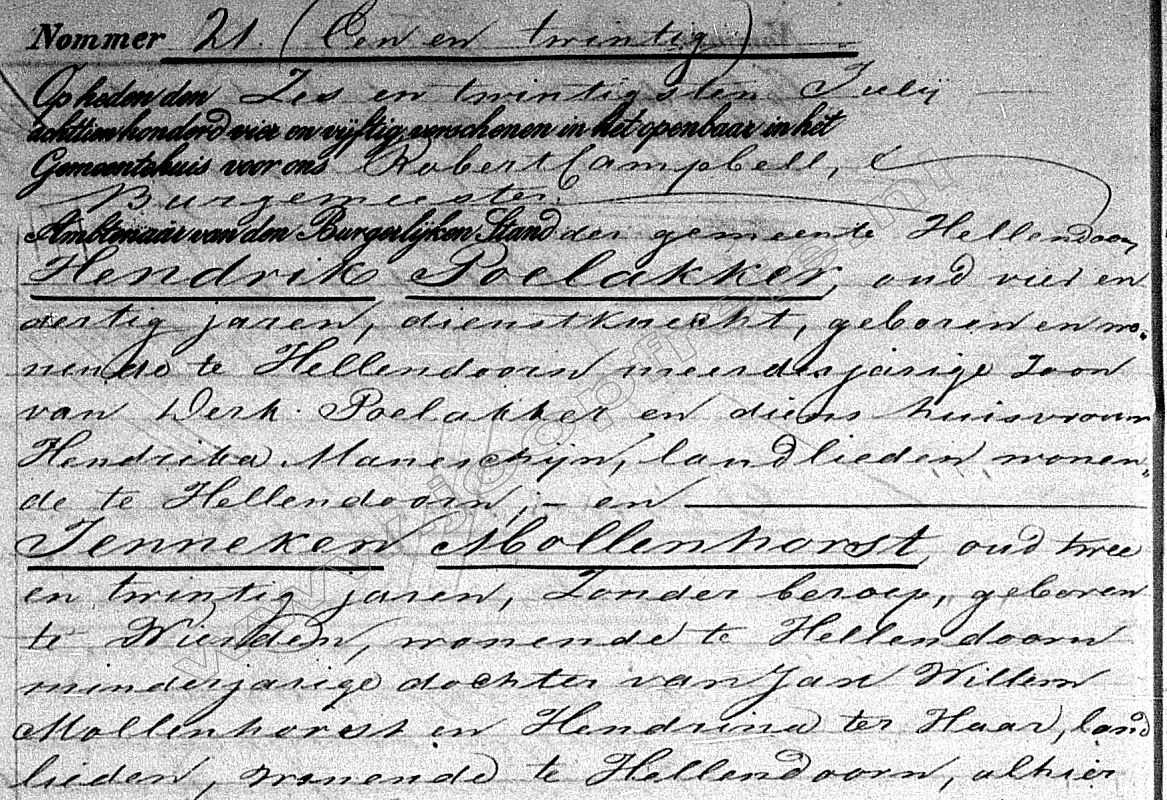 Nommer 21. (Een en twintig)
Op heden den Zes en twintigsten Julij
achttien honderd vier en vijftig, verschenen in het openbaar in het
Gemeentehuis voor ons Robert Campbell,
Burgemeester.
Ambtenaar van den Burgerlijken Stand der gemeente Hellendoorn
Hendrik Poelakker, oud vier en
dertig jaren, dienstknecht, geboren en wo-
nende te Hellendoorn meerderjarige zoon
van Derk Poelakker en diens huisvrouw
Hendrika Maneschijn, landlieden wonen-
de te Hellendoorn, - en
Jenneken Mollenhorst, oud twee
en twintig jaren, Zonder beroep, geboren
te Wierden, wonende te Hellendoorn
minderjarige dochter van Jan Willem
Mollenhorst en Hendrina ter Haar, land
lieden, wonende te Hellendoorn, alhier